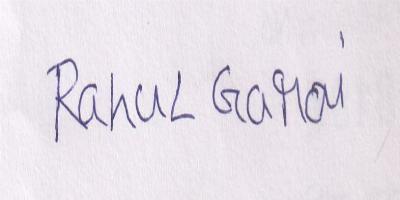 Rahul Garai